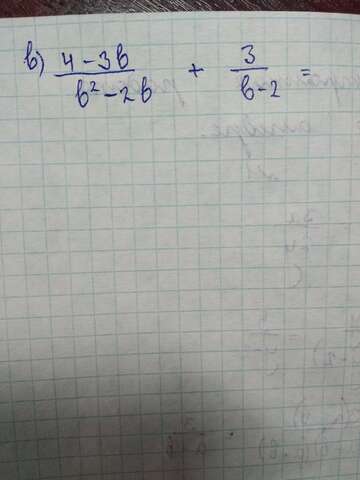 в) (4-3b)/(b²-2b) + 3/(b-2) =